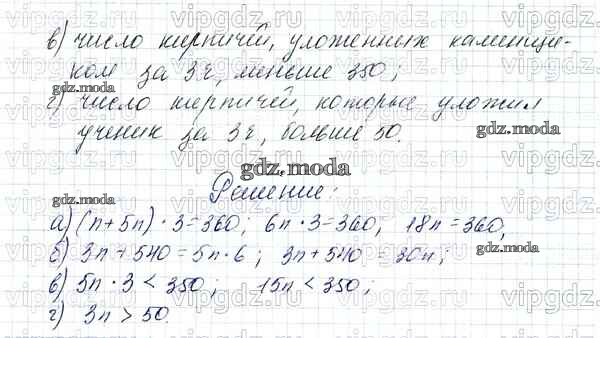 в) число кирпичей, уложенных каменщи-
ком за 3 ч, меньше 350;
г) число кирпичей, которые уложил
ученик за 3 ч, больше 50.
Решение:
а) (n+5n) · 3=360; 6n · 3=360; 18n=360,
б) 3n + 540 = 5n · 6; 3n + 540 = 30n;
в) 5n · 3 < 350; 15n < 350;
г) 3n > 50.
vipgdz.ru
gdz.moda